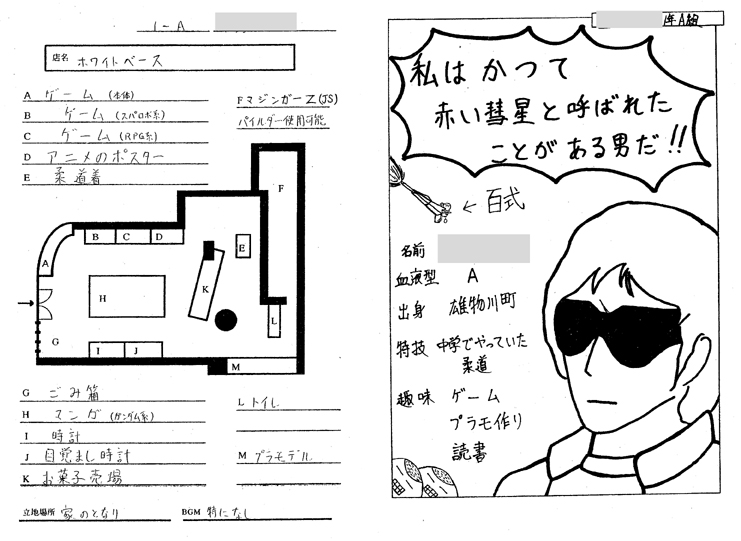 1-A
店名 ホワイトベース
A ゲーム (本体)
B ゲーム (スパロボ系)
C ゲーム (RPG系)
D アニメのポスター
E 柔道着
F マジンガーZ (JS)
パイルダー使用可能
F
B C D
A
E
K
H
L
G
I J
M
G ごみ箱
H マンガ (ガンダム系)
I 時計
J 目覚まし時計
K お菓子売場
L トイレ
M プラモデル
立地場所 家のとなり
BGM 特になし
年A組
私はかつて
赤い彗星と呼ばれた
ことがある男だ!!
← 百式
名前
血液型 A
出身 雄物川町
特技 中学でやっていた
柔道
趣味 ゲーム
プラモ作り
読書